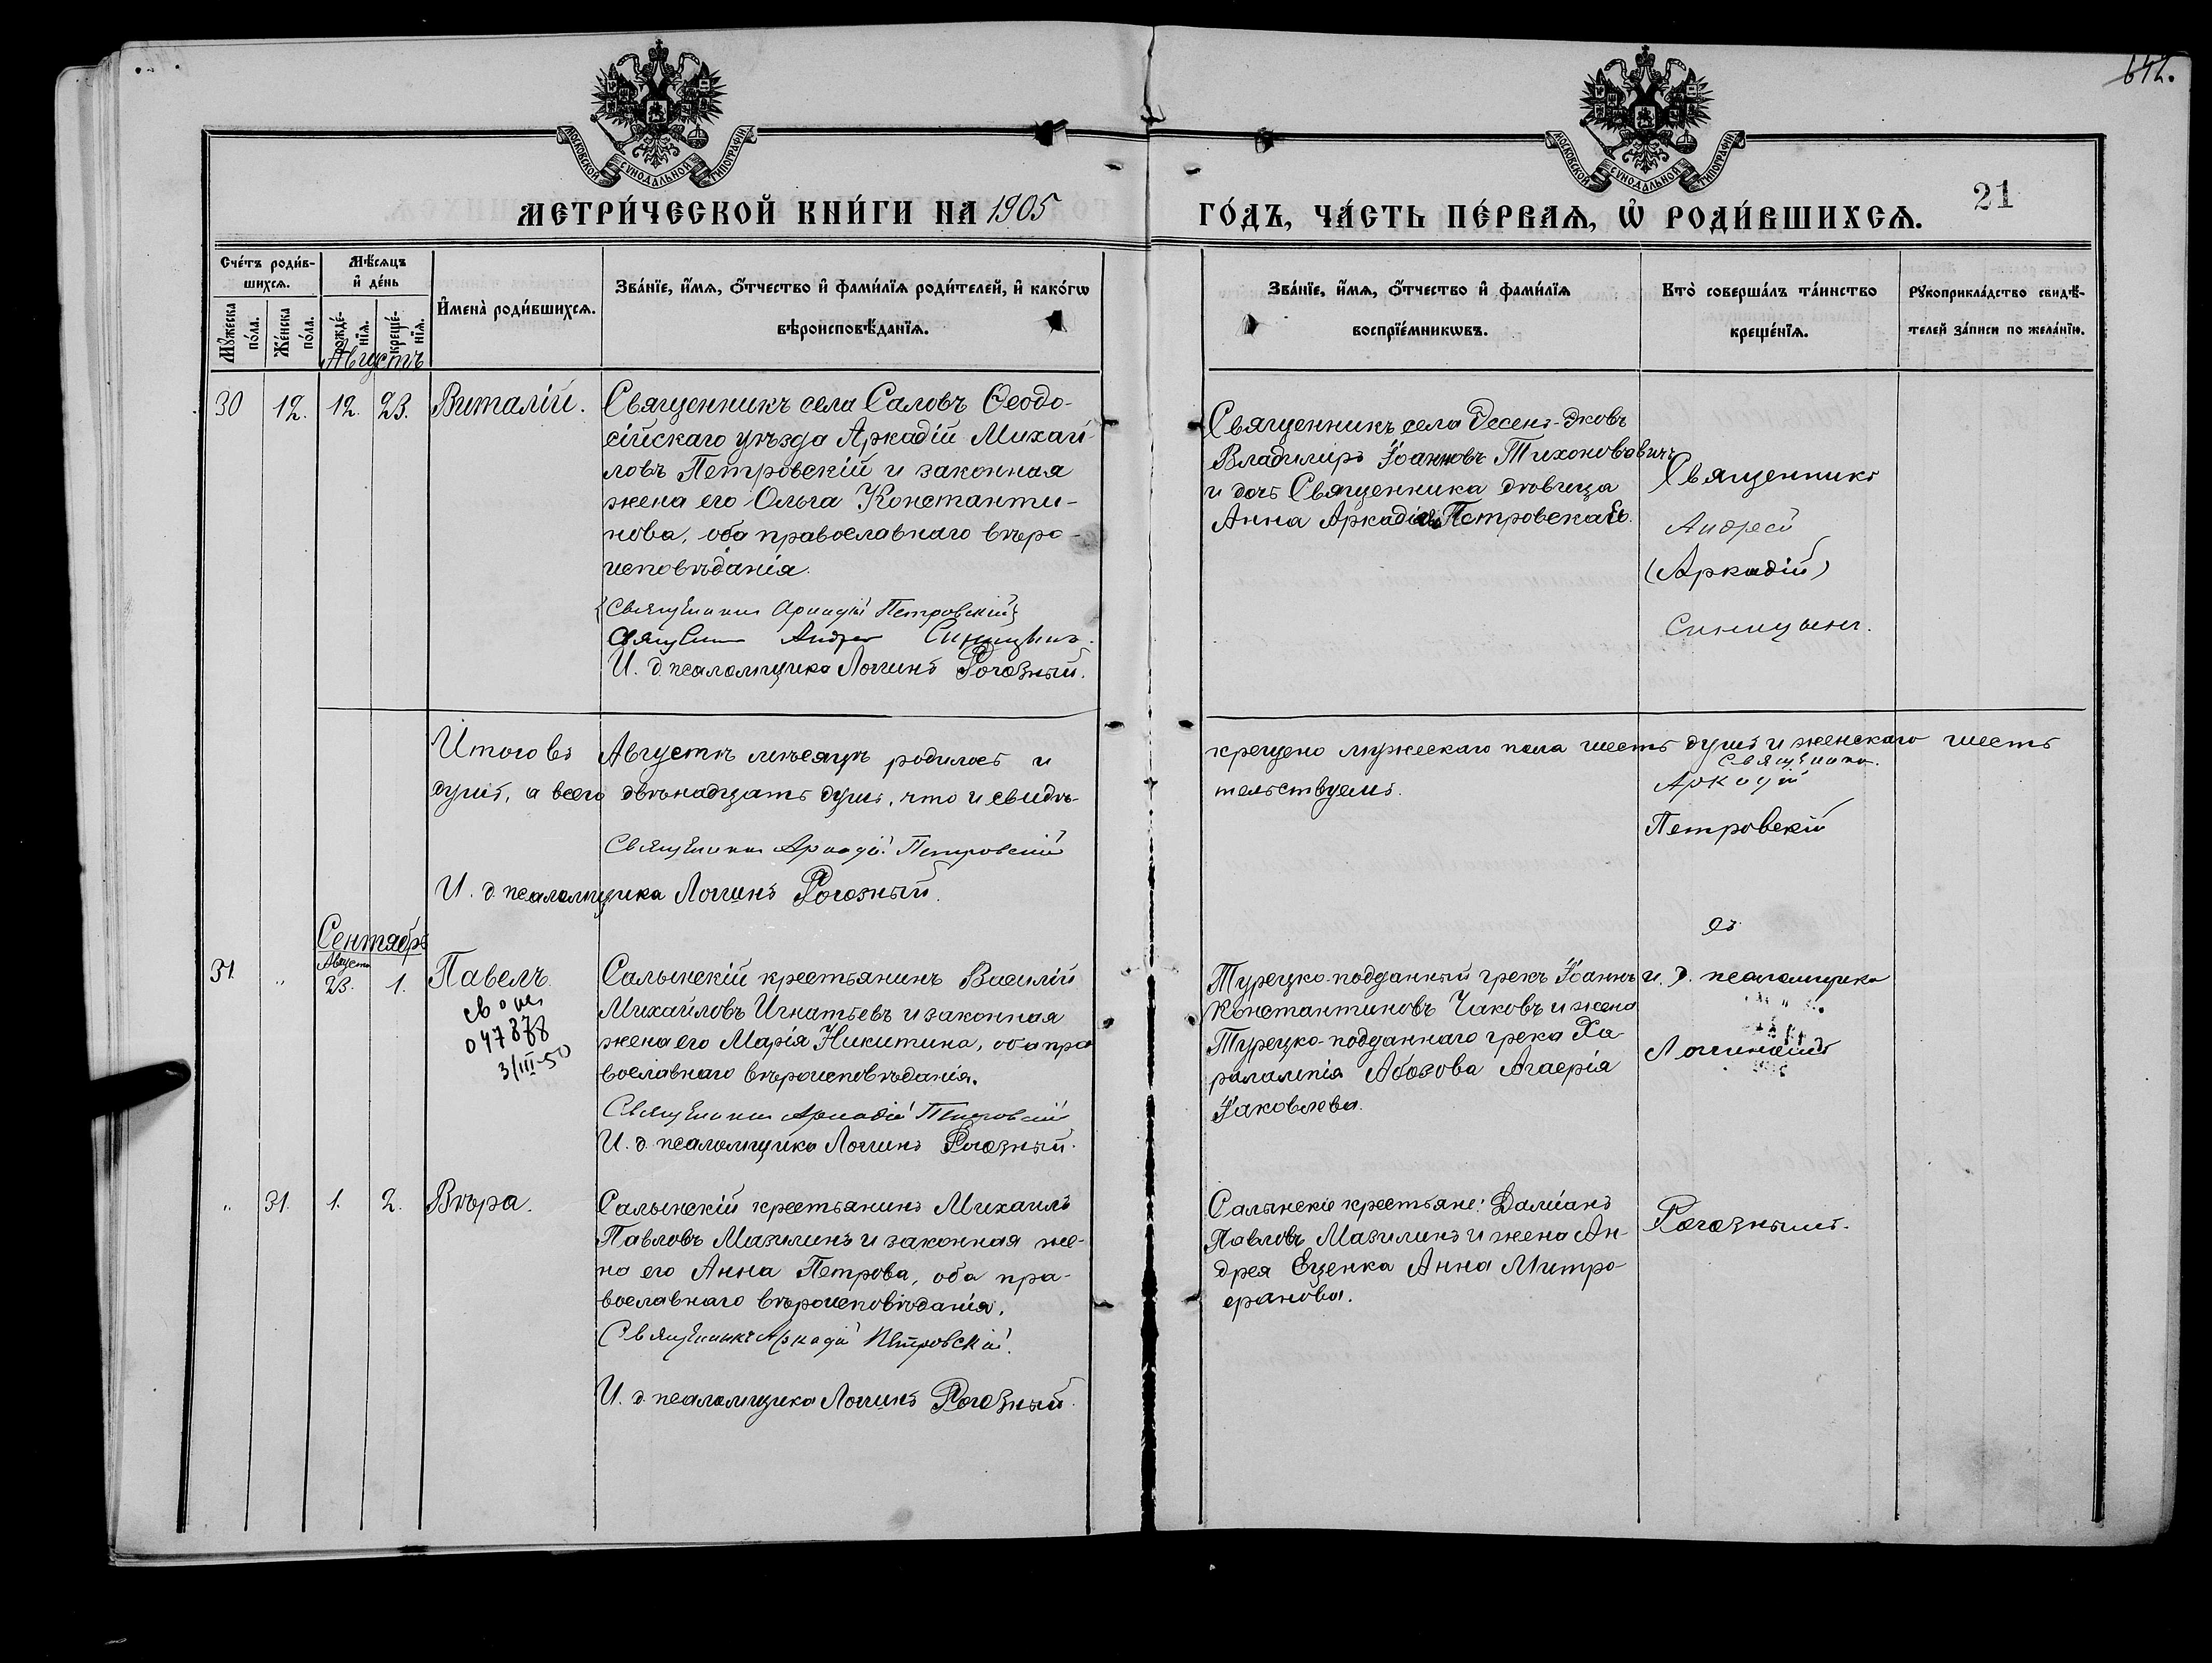 642.
МОСКОВСКОЙ СѴНОДАЛЬНОЙ ТИПОГРАФІИ
МОСКОВСКОЙ СѴНОДАЛЬНОЙ ТИПОГРАФІИ
МЕТРИ́ЧЕСКОЙ КНИ́ГИ НА 1905
ГО́ДЪ, ЧА́СТЬ ПЕ́РВАѦ, Ѽ РОДИ́ВШИХСѦ.
21
Сче́тъ роди́в-
шихсѧ.
Мѣ́сѧцъ
и҆ де́нь
Мꙋ́жеска по́ла.
Же́нска по́ла.
рожде́-
нїѧ.
креще́-
нїѧ.
И҆мена̀ роди́вшихсѧ.
Зва́нїе, и҆́мѧ, ѻ҆́тчество и҆ фами́лїѧ роди́телей, и҆ како́гѡ
вѣроисповѣ́данїѧ.
Зва́нїе, и҆́мѧ, ѻ҆́тчество и҆ фами́лїѧ
воспрїе́мникѡвъ.
Кто̀ соверша́лъ та́инство
креще́нїѧ.
Рꙋкоприкла́дство свидѣ́-
телей за́писи по жела́нїю.
Августъ
30 12. 12. 23. Виталій.
Священникъ села Саловъ Ѳеодо-
сійскаго уѣзда Аркадій Михай-
ловъ Петровскій и законная
жена его Ольга Константи-
нова, оба православнаго вѣро-
исповѣданія.
{Священникъ Аркадій Петровскій}
Священникъ Андрей Синицынъ.
И. д. псаломщика Логинъ Рогозный.
Священникъ села
Владиміръ Іоанновъ Тихоновичъ
и дочь Священника дѣвица
Анна Аркадіева Петровская.
Священникъ
Андрей
(Аркадій)
Синицынъ.
Итого въ Августѣ мѣсяцѣ родилось и
крещено мужескаго пола шесть душъ и женскаго шесть
душъ, а всего двѣнадцать душъ, что и свидѣ-
тельствуемъ.
Священникъ Аркадій Петровскій
И. д. псаломщика Логинъ Рогозный.
Священникъ
Аркадій
Петровскій
съ
Сентябрь
31. " Августа 23. 1. Павелъ.
047878
3/III-50
Салынскій крестьянинъ Василій
Михайловъ Игнатьевъ и законная
жена его Марія Никитина, оба пра
вославнаго вѣроисповѣданія.
Священникъ Аркадій Петровскій
И. д. псаломщика Логинъ Рогозный.
Турецко-подданный грекъ Іоаннъ
Константиновъ Чаковъ и жена
Турецко-подданнаго грека Ха-
ралампія Абозова
Іаковлева.
и. д. псаломщика
Логиномъ
" 31. 1. 2. Вѣра.
Салынскій крестьянинъ Михаилъ
Павловъ Мазилинъ и законная же-
на его Анна Петрова, оба пра-
вославнаго вѣроисповѣданія.
Священникъ Аркадій Петровскій.
И. д. псаломщика Логинъ Рогозный.
Салынскіе крестьяне: Даміанъ
Павловъ Мазилинъ и жена Ан-
дрея Еценка Анна Митро-
фанова.
Рогознымъ.